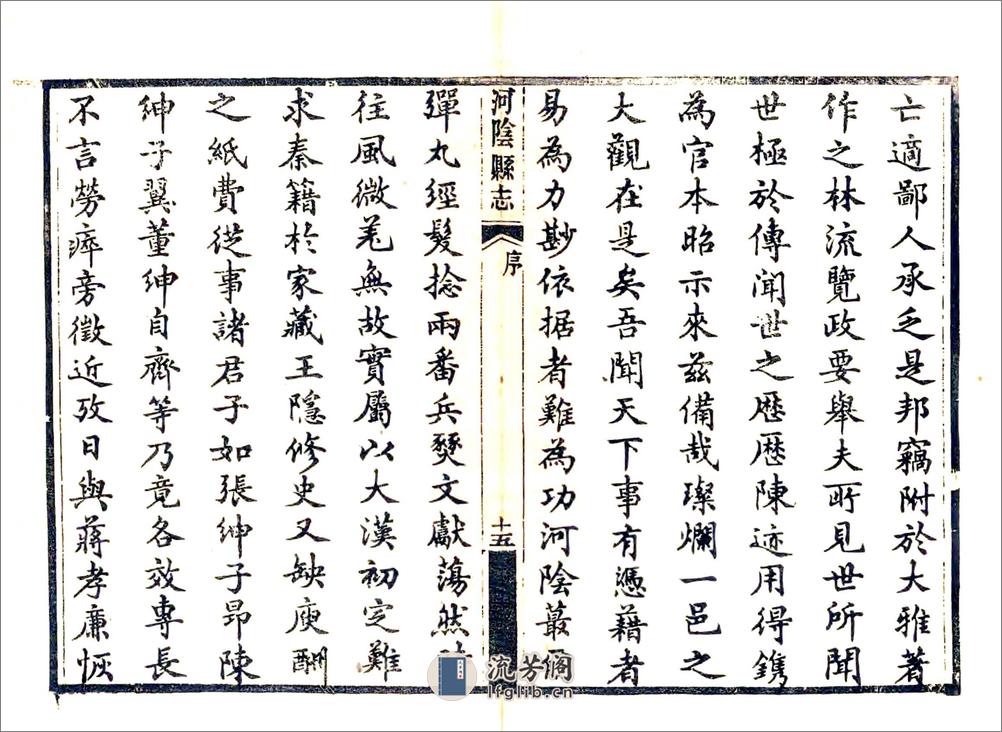 亡適鄙人承乏是邦竊附於大雅著
作之林流覽政要舉夫所見世所聞
世極於傳聞世之歴歴陳迹用得鐫
為官本昭示來兹備哉璨爛一邑之
大觀在是矣吾聞天下事有憑藉者
易為力尠依据者難為功河陰蕞
河陰縣志
序
十五
彈丸經髮捻兩番兵燹文獻蕩然
往風微羌無故實屬以大漢初定難
求秦籍於家藏王隱修史又缺庾酬
之紙費從事諸君子如張紳子昂陳
紳子翼董紳自齊等乃竟各效專長
不言勞瘁旁徵近攷日與蔣孝廉恢
流芳阁
lfglib.cn